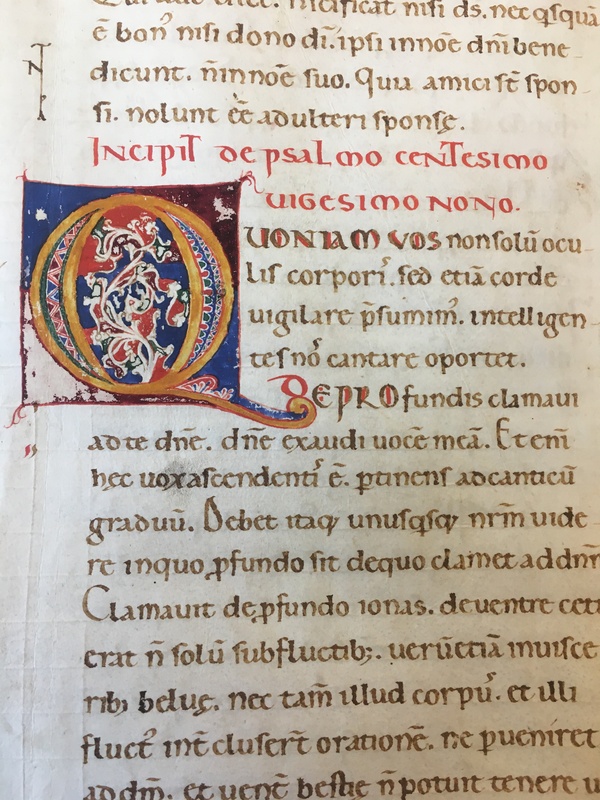 nisi ds. nec qsquā
ē bon᾽ nisi dono di. ipsi innoē dnī bene
dicunt. n̄ innoē suo. Quia amici st̄ spon
si. nolunt ēē adulteri sponsę.
INCIPIT de psalmo centesimo
uigesimo nono.
QUONIAM VOS non solū ocu
lis corpori᾽. sed etiā corde
uigilare p̄sumim᾽. intelligen
tes nō cantare oportet.
DE PROfundis clamaui
ad te dn̄e. dn̄e exaudi uocē meā. Et eni
hęc uox ascendenti᾽ ē. ꝑtinens ad canticū
graduū. Debet itaq; unusq̇sq; nr̄m uide
re in quo ꝓfundo sit de quo clamet ad dnm̄
Clamauit de ꝓfundo ionas. de uentre ceti
erat n̄ solū sub fluctib;. uerū etiā in uisce
rib; beluę. nec tam̄ illud corpu᾽. et illi
fluct᾽ int̄clusert̄ orationē. ne ꝑueniret
ad dm̄. et uent̄ bestię n̄ potuit tenere